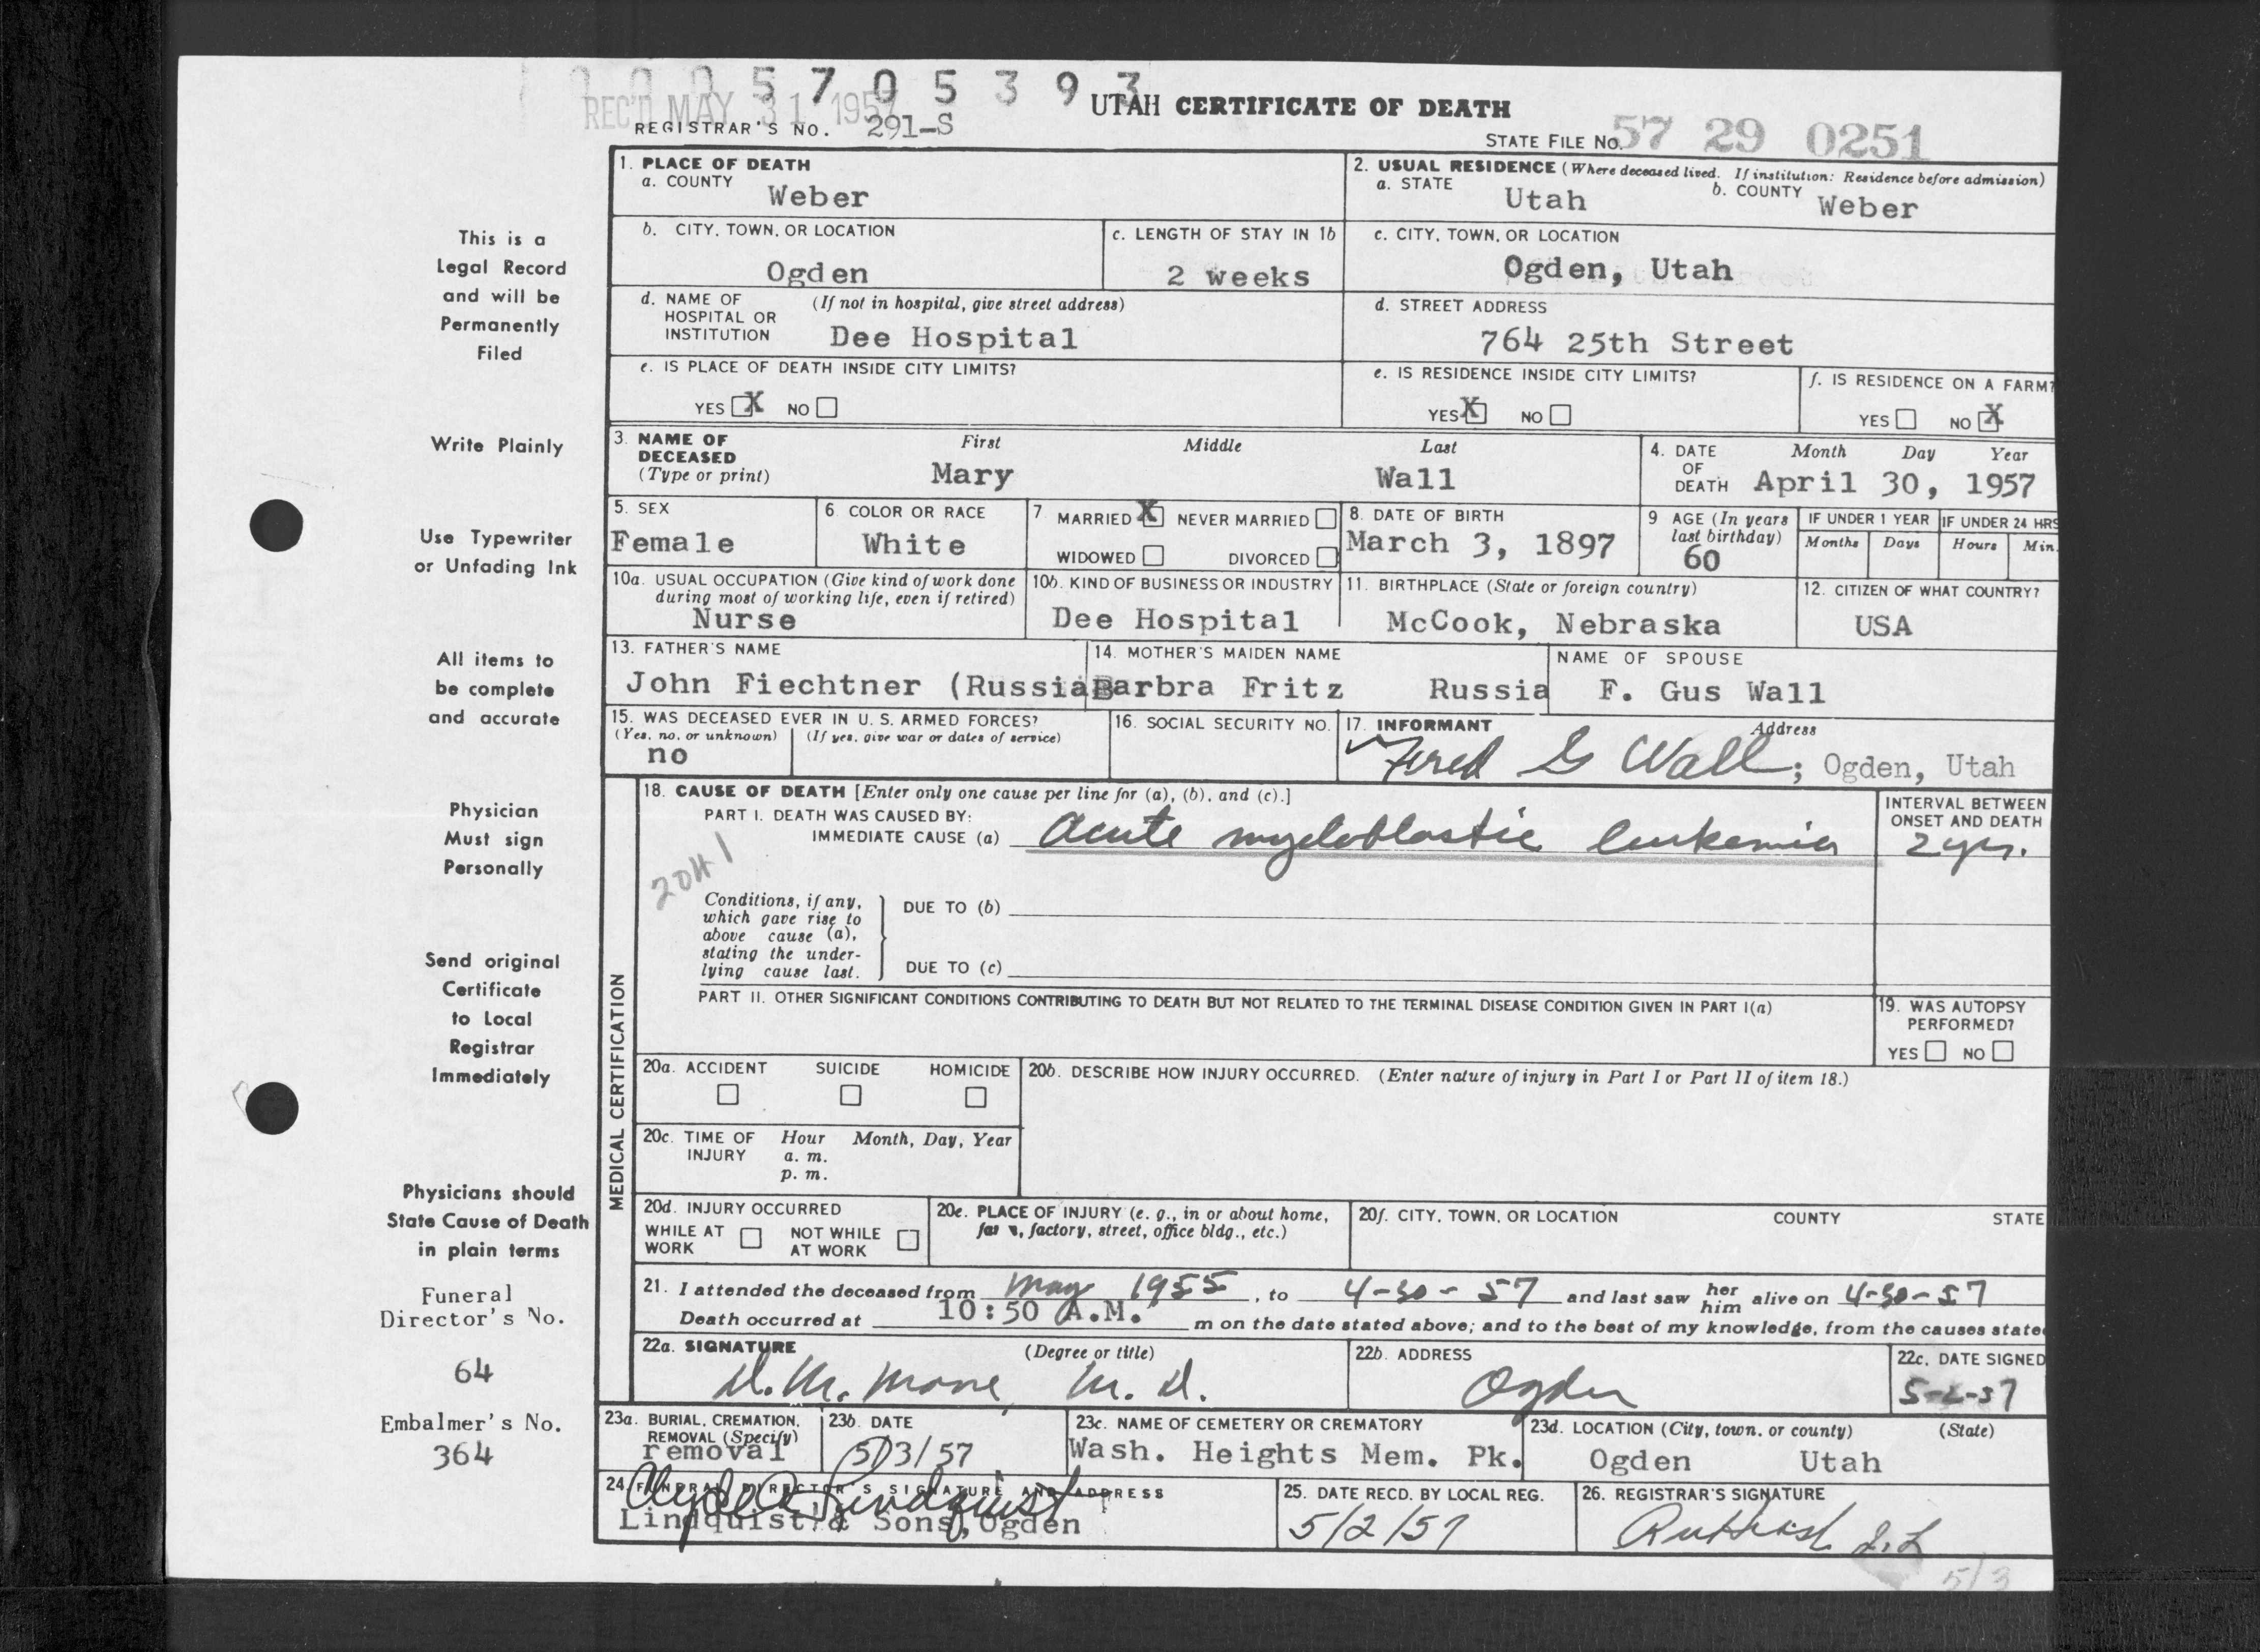 1 0 0 5 7 0 5 3 9 3
REC'D MAY 31 1957
UTAH CERTIFICATE OF DEATH
REGISTRAR'S NO. 291-S
STATE FILE NO. 57 29 0251
1. PLACE OF DEATH
a. COUNTY Weber
2. USUAL RESIDENCE (Where deceased lived. If institution: Residence before admission)
a. STATE Utah b. COUNTY Weber
b. CITY, TOWN, OR LOCATION Ogden
c. LENGTH OF STAY IN 1b 2 weeks
c. CITY, TOWN, OR LOCATION Ogden, Utah
d. NAME OF HOSPITAL OR INSTITUTION (If not in hospital, give street address) Dee Hospital
d. STREET ADDRESS 764 25th Street
e. IS PLACE OF DEATH INSIDE CITY LIMITS?
YES X NO
e. IS RESIDENCE INSIDE CITY LIMITS?
YES X NO
f. IS RESIDENCE ON A FARM?
YES NO X
3. NAME OF DECEASED (Type or print) First Middle Last
Mary Wall
4. DATE OF DEATH Month Day Year
April 30, 1957
5. SEX Female
6. COLOR OR RACE White
7. MARRIED X NEVER MARRIED
WIDOWED DIVORCED
8. DATE OF BIRTH March 3, 1897
9 AGE (In years last birthday) 60
IF UNDER 1 YEAR Months Days
IF UNDER 24 HRS Hours Min.
10a. USUAL OCCUPATION (Give kind of work done during most of working life, even if retired) Nurse
10b. KIND OF BUSINESS OR INDUSTRY Dee Hospital
11. BIRTHPLACE (State or foreign country) McCook, Nebraska
12. CITIZEN OF WHAT COUNTRY? USA
13. FATHER'S NAME John Fiechtner (Russia
14. MOTHER'S MAIDEN NAME Barbra Fritz Russia
NAME OF SPOUSE F. Gus Wall
15. WAS DECEASED EVER IN U. S. ARMED FORCES?
(Yes, no, or unknown) (If yes, give war or dates of service)
no
16. SOCIAL SECURITY NO.
17. INFORMANT Address
Fred G Wall; Ogden, Utah
18. CAUSE OF DEATH [Enter only one cause per line for (a), (b), and (c).]
PART I. DEATH WAS CAUSED BY:
IMMEDIATE CAUSE (a) Acute myeloblastic leukemia
INTERVAL BETWEEN ONSET AND DEATH
2 yrs.
2041
Conditions, if any, which gave rise to above cause (a), stating the underlying cause last.
DUE TO (b)
DUE TO (c)
PART II. OTHER SIGNIFICANT CONDITIONS CONTRIBUTING TO DEATH BUT NOT RELATED TO THE TERMINAL DISEASE CONDITION GIVEN IN PART I(a)
19. WAS AUTOPSY PERFORMED?
YES NO
MEDICAL CERTIFICATION
20a. ACCIDENT SUICIDE HOMICIDE
20b. DESCRIBE HOW INJURY OCCURRED. (Enter nature of injury in Part I or Part II of item 18.)
20c. TIME OF INJURY Hour Month, Day, Year
a. m.
p. m.
20d. INJURY OCCURRED
WHILE AT WORK NOT WHILE AT WORK
20e. PLACE OF INJURY (e. g., in or about home, farm, factory, street, office bldg., etc.)
20f. CITY, TOWN, OR LOCATION COUNTY STATE
21. I attended the deceased from May 1955, to 4-30-57 and last saw her him alive on 4-30-57
Death occurred at 10:50 A.M. m on the date stated above; and to the best of my knowledge, from the causes state
22a. SIGNATURE (Degree or title)
D. M. Moore, M. D.
22b. ADDRESS Ogden
22c. DATE SIGNED 5-2-57
23a. BURIAL, CREMATION, REMOVAL (Specify) removal
23b. DATE 5/3/57
23c. NAME OF CEMETERY OR CREMATORY Wash. Heights Mem. Pk.
23d. LOCATION (City, town, or county) (State)
Ogden Utah
24. FUNERAL DIRECTOR'S SIGNATURE AND ADDRESS
Lindquist
Lindquist & Sons, Ogden
25. DATE RECD. BY LOCAL REG. 5/2/57
26. REGISTRAR'S SIGNATURE
5/3
This is a
Legal Record
and will be
Permanently
Filed
Write Plainly
Use Typewriter
or Unfading Ink
All items to
be complete
and accurate
Physician
Must sign
Personally
Send original
Certificate
to Local
Registrar
Immediately
Physicians should
State Cause of Death
in plain terms
Funeral
Director's No.
64
Embalmer's No.
364